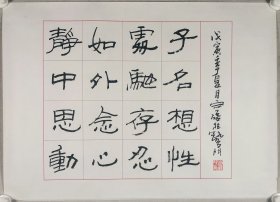 靜如處子
中外馳名
思念存想
動心忍性
戊寅年夏月